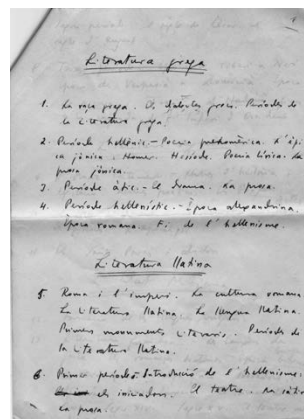 Literatura grega
1. La raça grega. Els dialectes grecs. Períodes de
la Literatura grega.
2. Període hel·lènic.- Poesia prehomèrica. L'èpi-
ca jònica. Homer. Hesíode. Poesia lírica. La
prosa jònica.
3. Període àtic.- El drama. La prosa.
4. Període hel·lenístic.- Època alexandrina.
Època romana. Fi de l'hel·lenisme.
Literatura llatina
5. Roma i l'imperi. La cultura romana
La Literatura llatina. La llengua llatina.
Primers monuments literaris. Períodes de
la Literatura llatina.
6. Primer període: Introducció de l'hel·lenisme:
els iniciadors. El teatre. La sàti
La prosa.